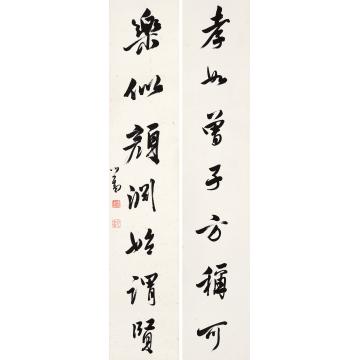 孝如曾子方稱可
樂似顏淵始謂賢
心畬